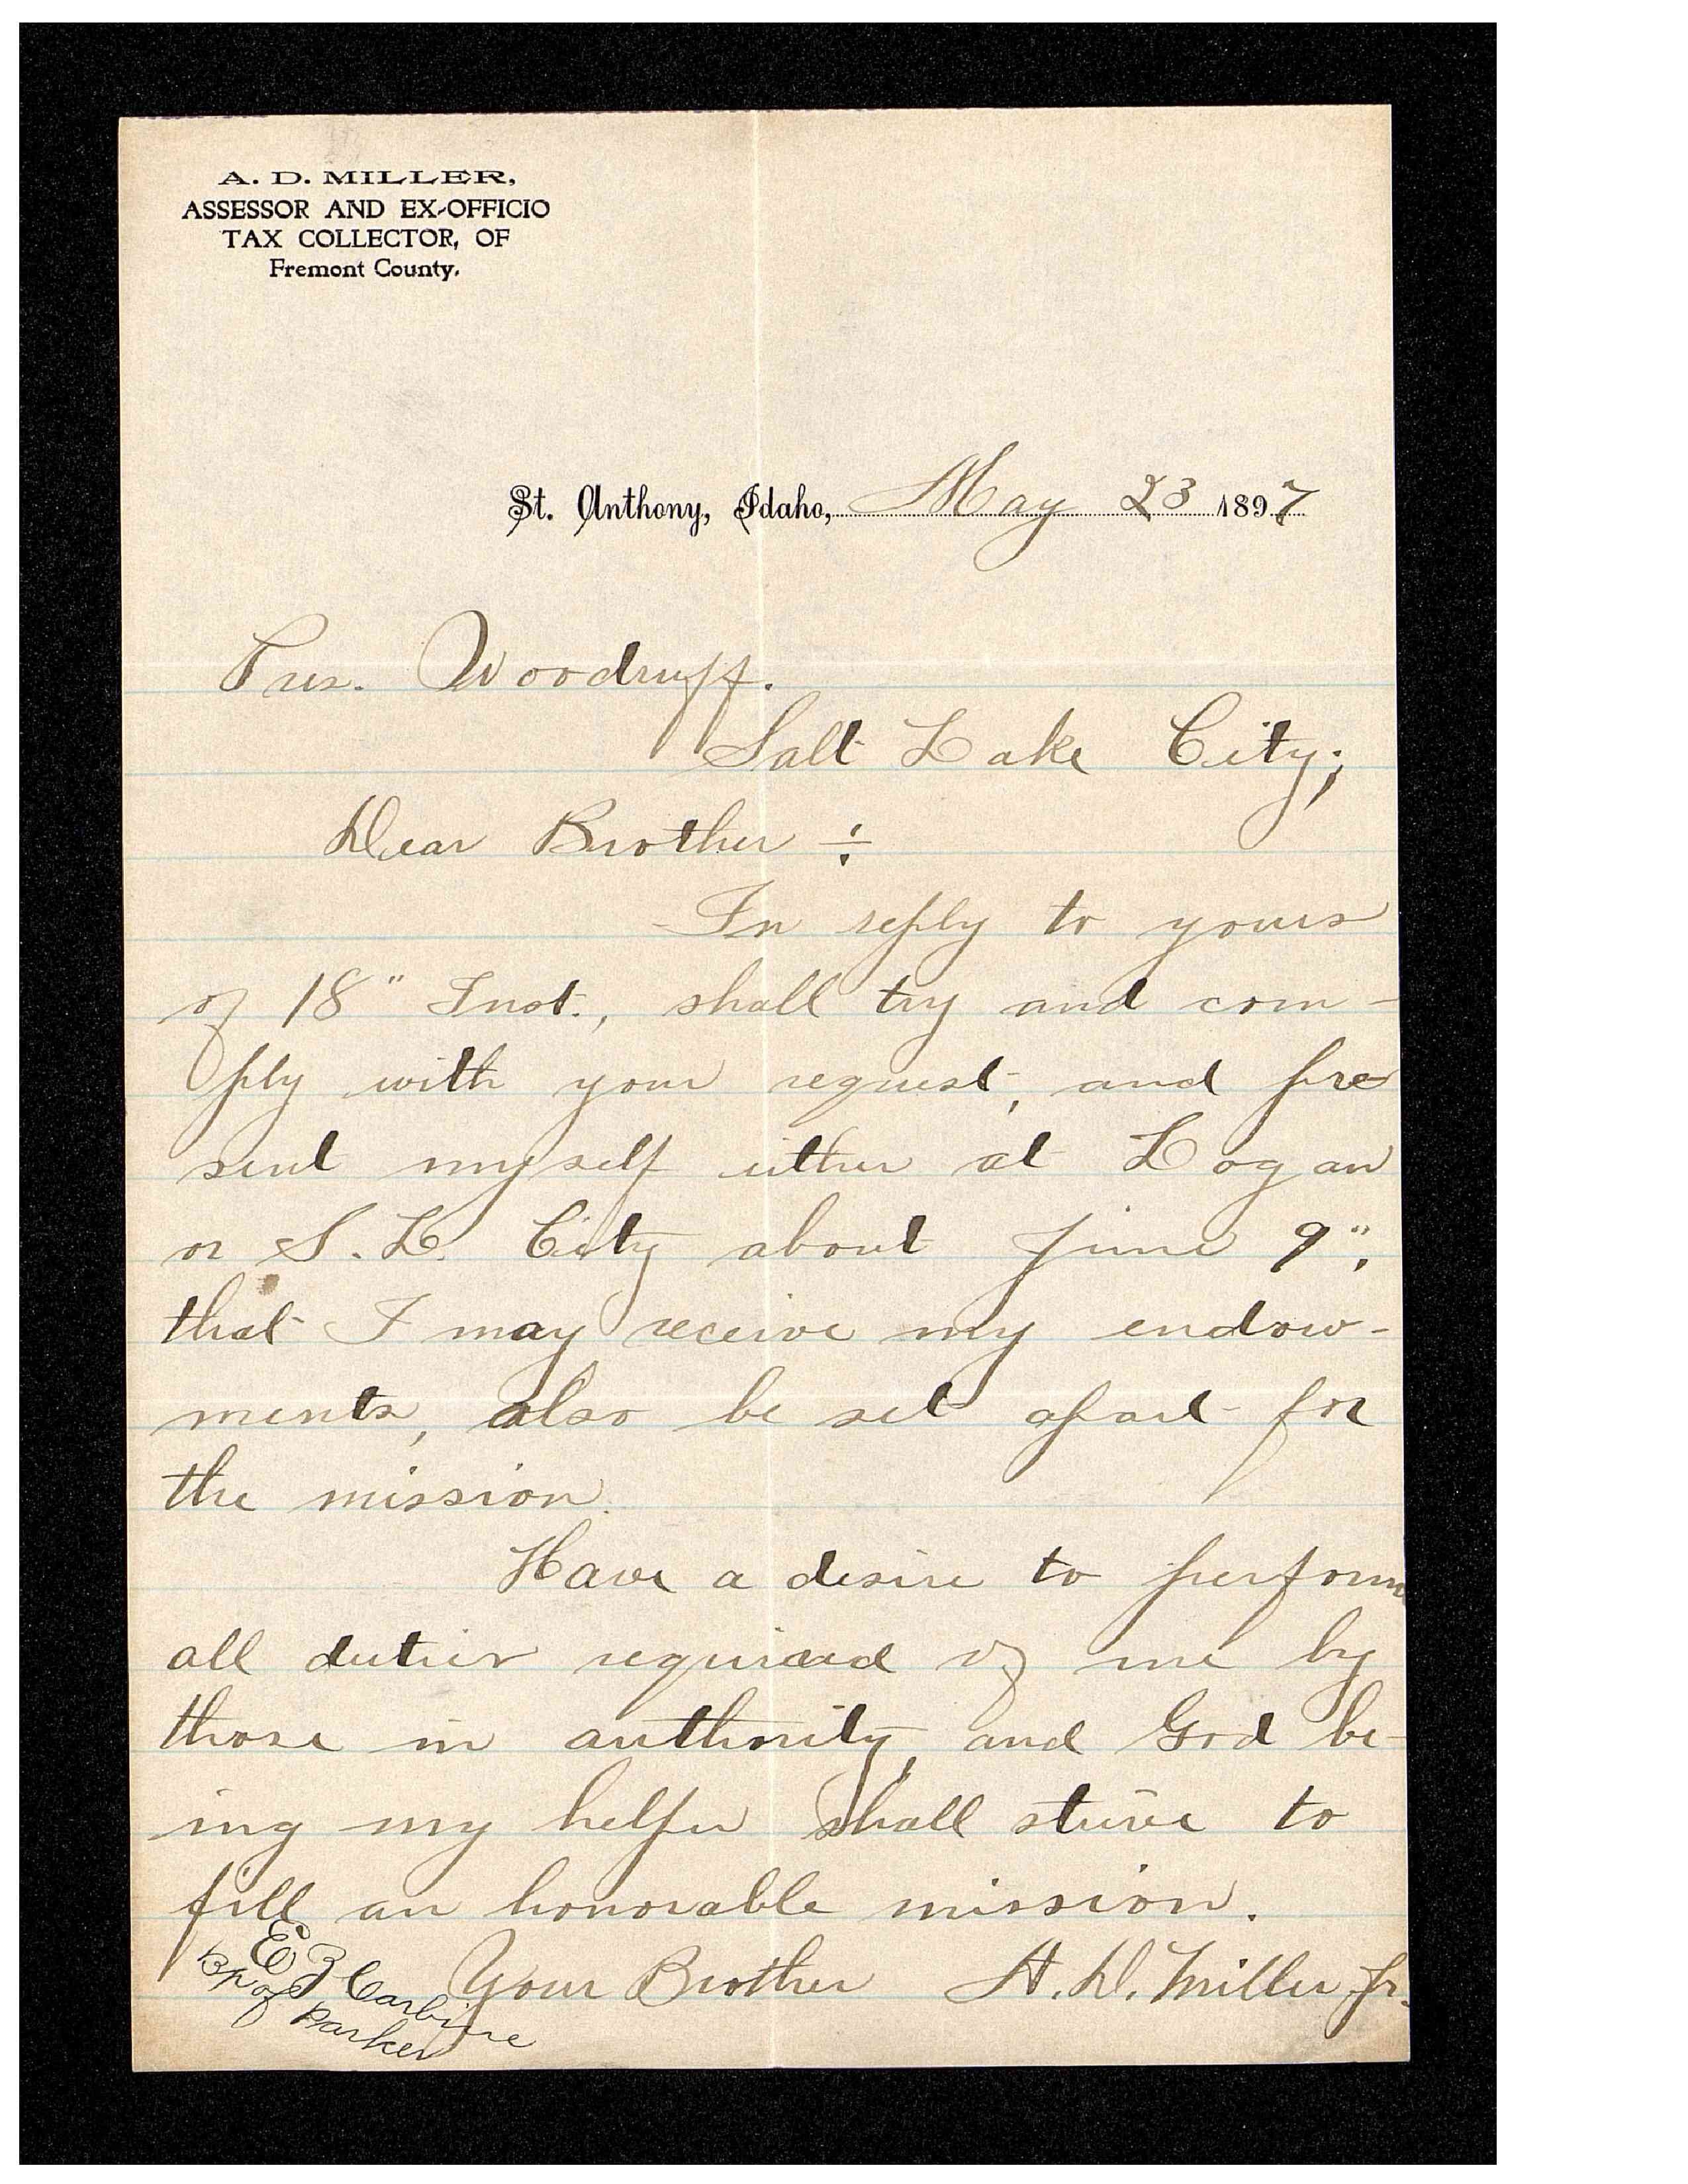 A. D. MILLER,
ASSESSOR AND EX-OFFICIO
TAX COLLECTOR, OF
Fremont County.
St. Anthony, Idaho, May 23 1897
Pres. Woodruff.
Salt Lake City;
Dear Brother ÷
In reply to yours
of 18" Inst., shall try and com-
ply with your request, and pre
sent myself either at Logan
or S. L. City about June 9",
that I may receive my endow-
ments, also be set apart for
the mission.
Have a desire to perform
all duties required of me by
those in authority, and God be-
ing my helper shall strive to
fill an honorable mission.
Your Brother A. D. Miller Jr.
E Z Carbine
Bp of
Parker